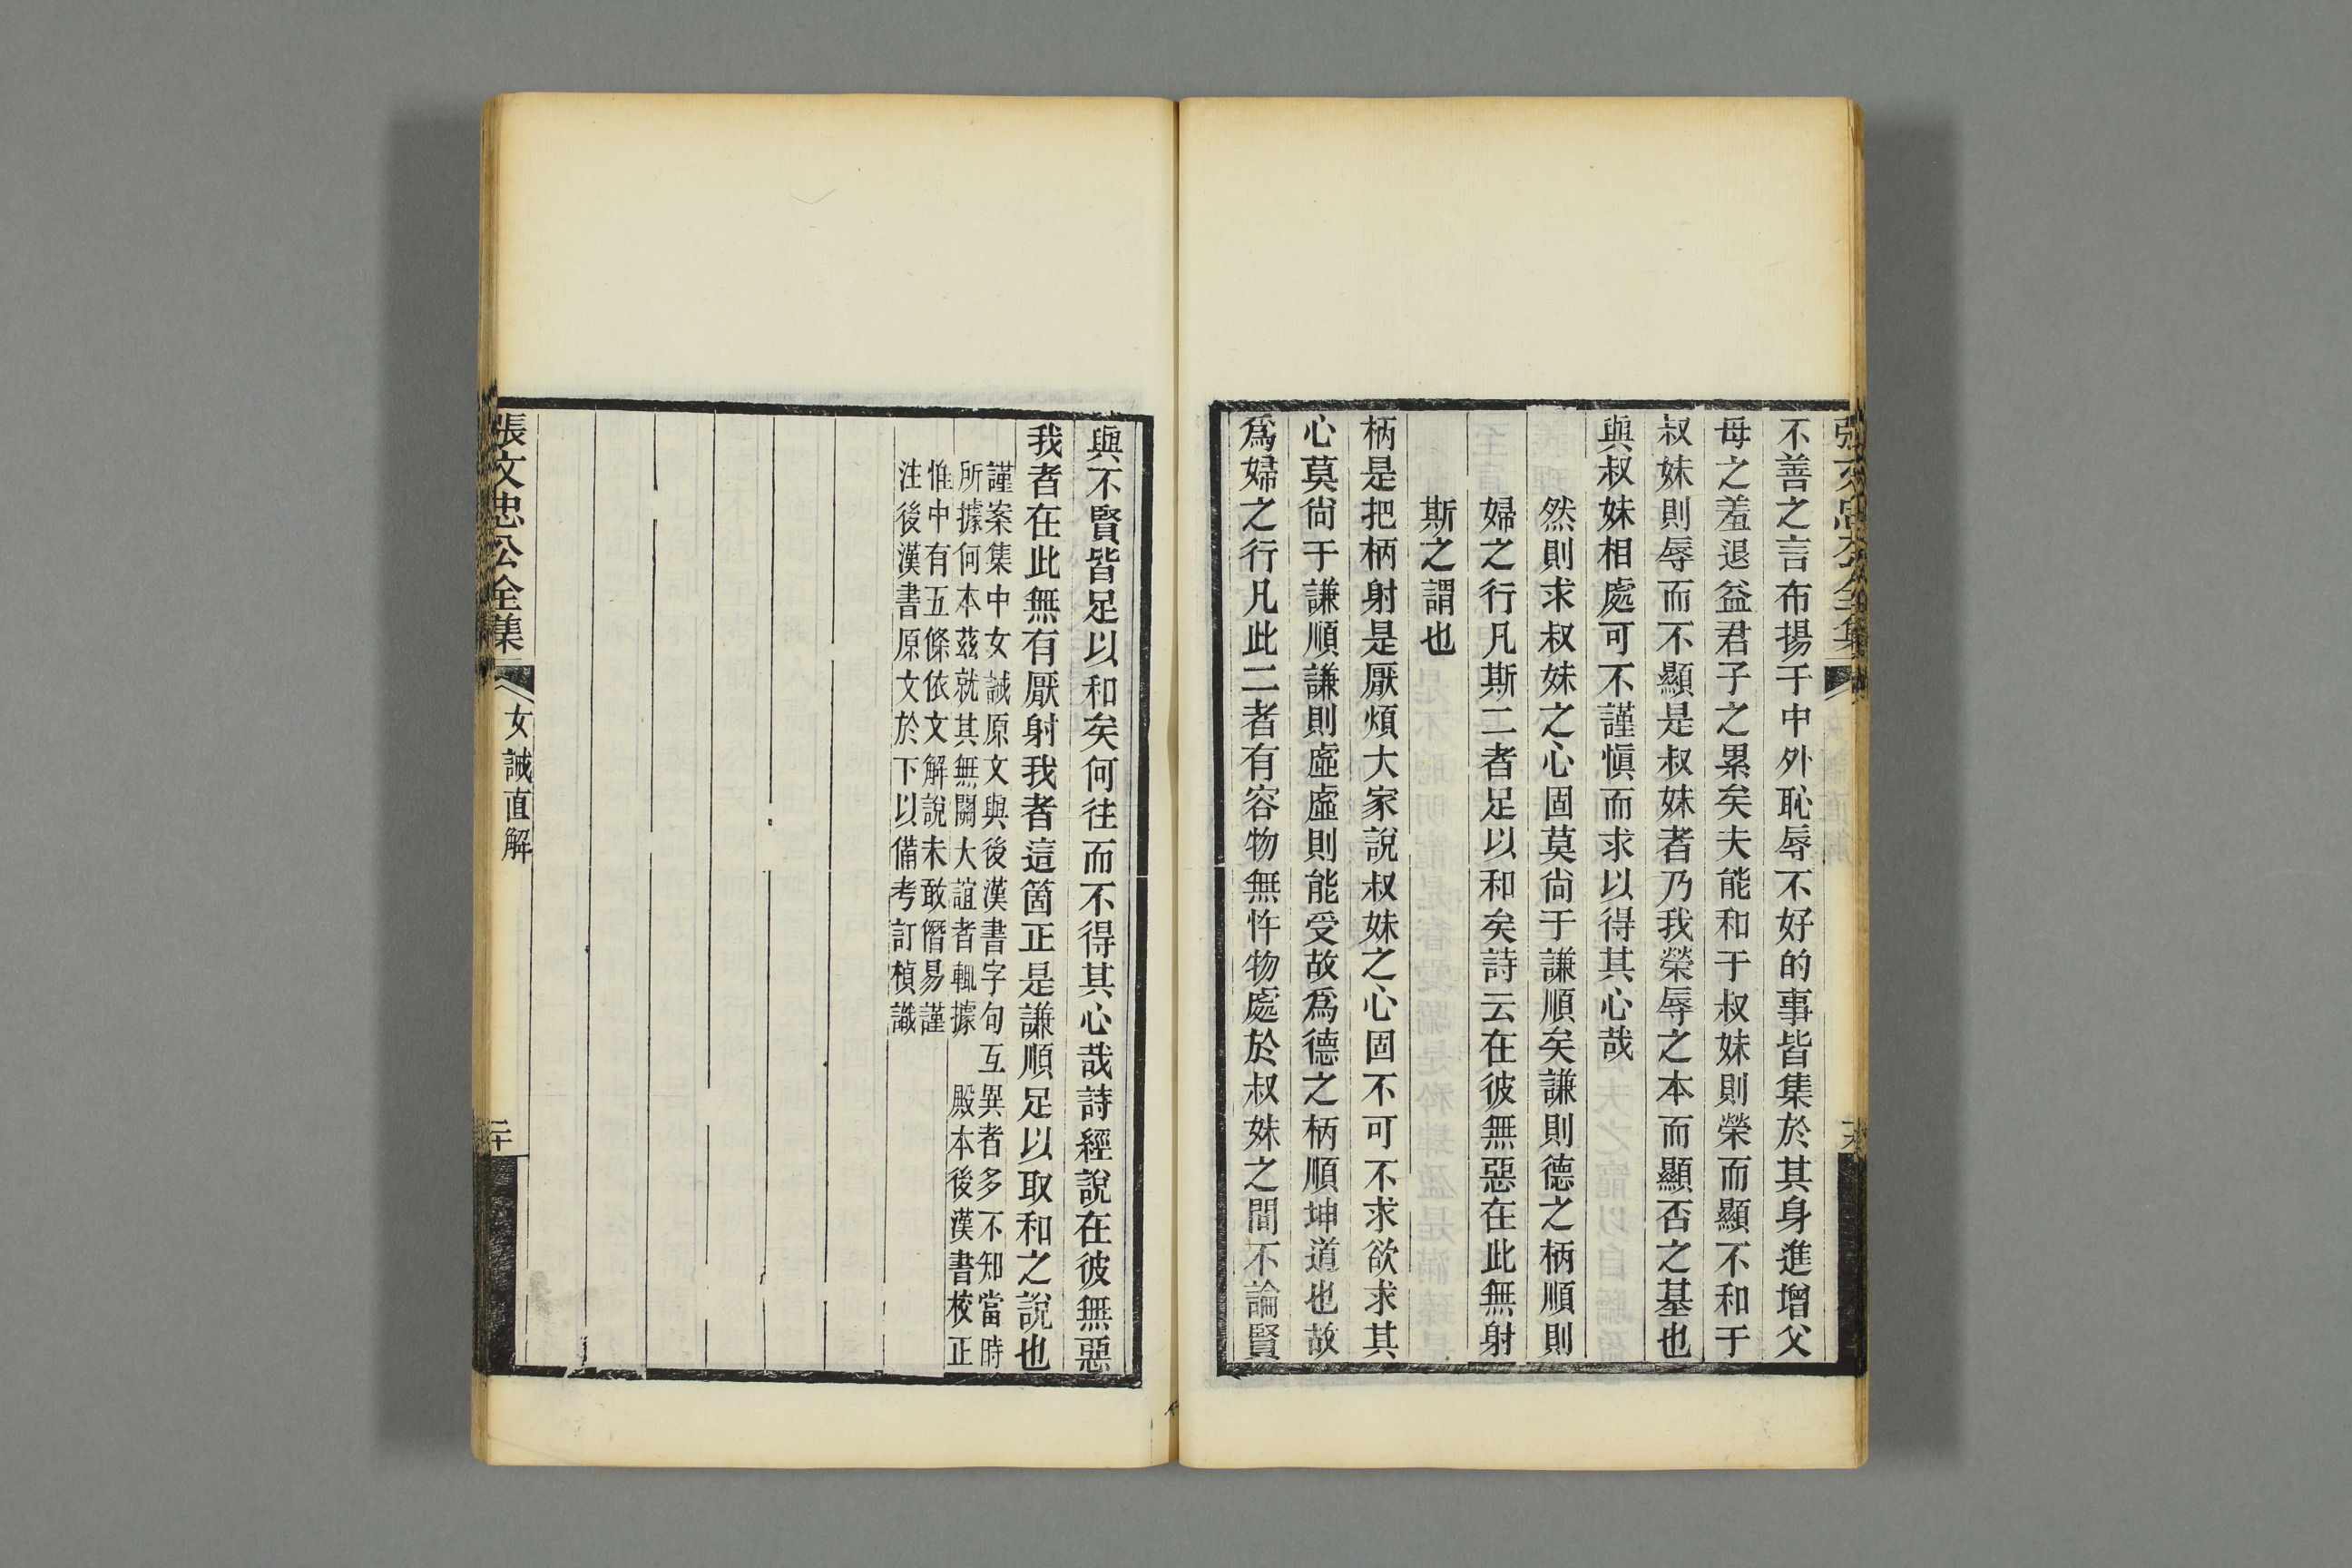 不善之言布揚于中外恥辱不好的事皆集於其身進增父
母之羞退益君子之累矣夫能和于叔妹則榮而顯不和于
叔妹則辱而不顯是叔妹者乃我榮辱之本而顯否之基也
與叔妹相處可不謹慎而求以得其心哉
然則求叔妹之心固莫尚于謙順矣謙則德之柄順則
婦之行凡斯二者足以和矣詩云在彼無惡在此無射
斯之謂也
柄是把柄射是厭煩大家說叔妹之心固不可不求欲求其
心莫尚于謙順謙則虛虛則能受故爲德之柄順坤道也故
爲婦之行凡此二者有容物無忤物處於叔妹之間不論賢
與不賢皆足以和矣何往而不得其心哉詩經說在彼無惡
我者在此無有厭射我者這箇正是謙順足以取和之說也
謹案集中女誡原文與後漢書字句互異者多不知當時
所據何本茲就其無關大誼者輒據 殿本後漢書校正
惟中有五條依文解說未敢僭易謹
注後漢書原文於下以備考訂楨識
張文忠公全集
女誡直解
二十